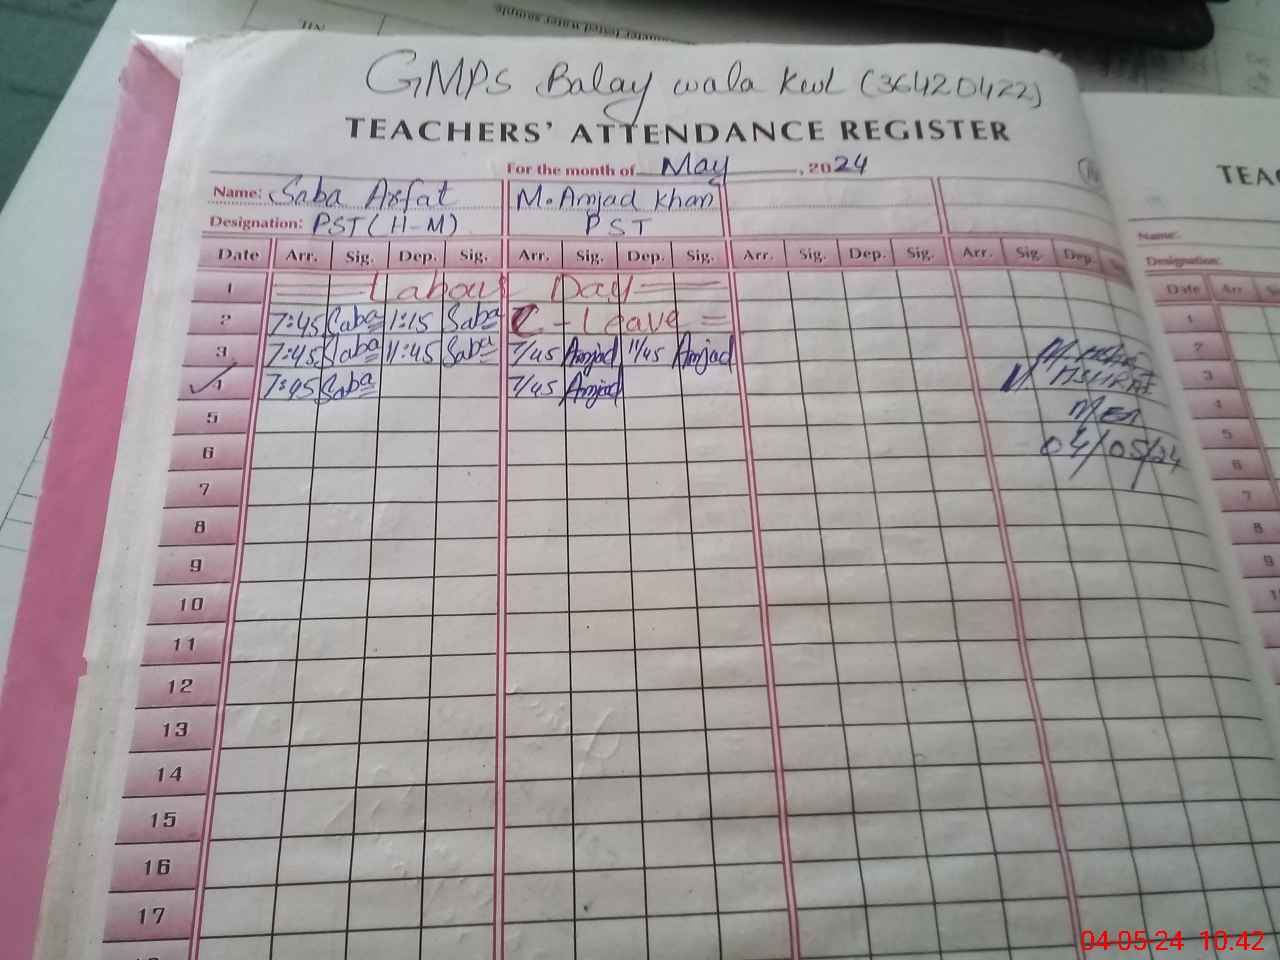 GMPS Balay wala Kwl (36420422)
TEACHERS' ATTENDANCE REGISTER
For the month of May, 2024
Name: Saba Arfat M. Amjad Khan
Designation: PST (H-M) PST
Date Arr. Sig. Dep. Sig. Arr. Sig. Dep. Sig. Arr. Sig. Dep. Sig. Arr. Sig. Dep.
1 Labour Day
2 7:45 Saba 1:15 Saba C - Leave =
3 7:45 Saba 11:45 Saba 7/45 Amjad 11/45 Amjad
4 7:45 Saba 7/45 Amjad
5
6 04/05/24
7
8
9
10
11
12
13
14
15
16
17
TEAC
Name:
Designation:
Date Arr
1
2
3
4
5
6
7
8
9
04-05-24 10:42